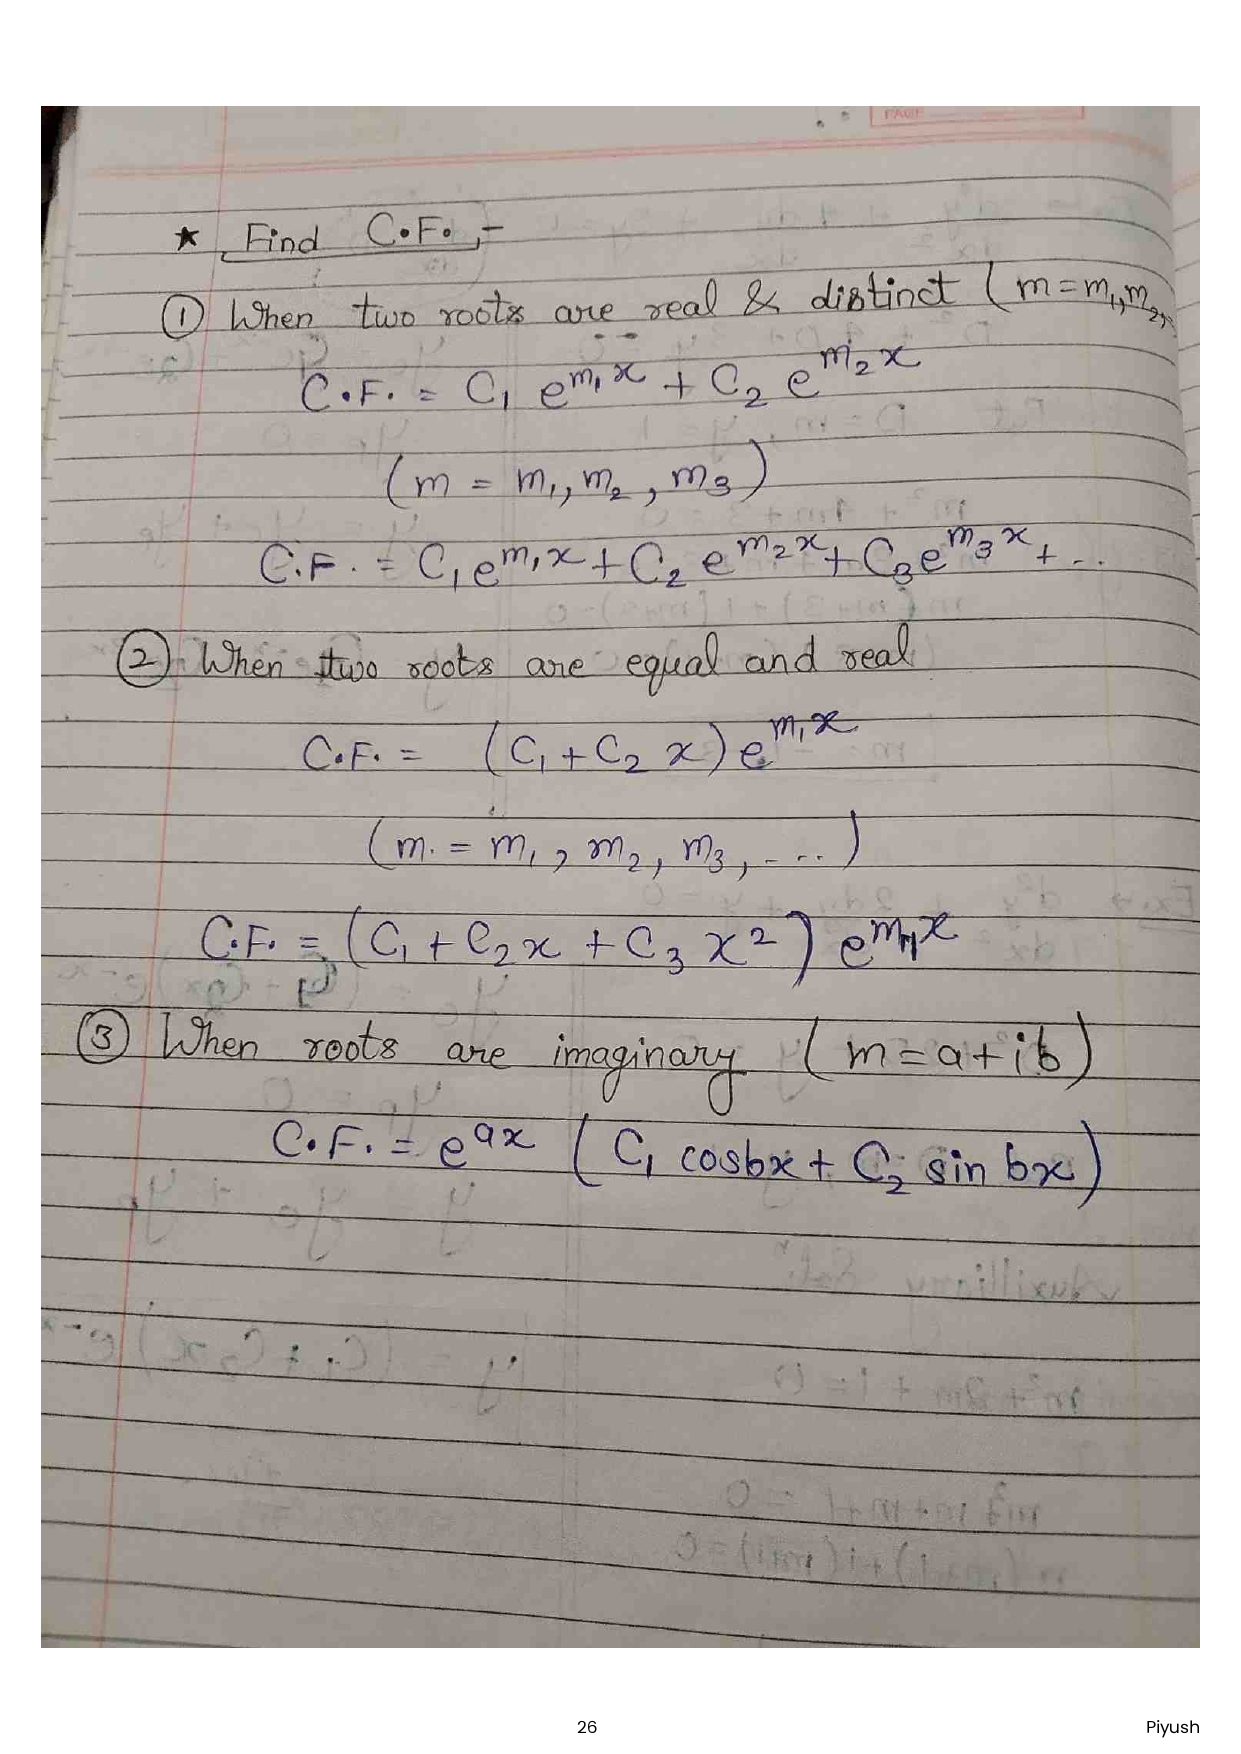 PAGE
★ Find C.F. :-
① When two roots are real & distinct (m = m₁, m₂,
C.F. = C₁ e^{m₁x} + C₂ e^{m₂x}
(m = m₁, m₂, m₃)
C.F. = C₁e^{m₁x} + C₂ e^{m₂x} + C₃e^{m₃x} + ...
② When two roots are equal and real
C.F. = (C₁ + C₂ x) e^{m₁x}
(m = m₁, m₂, m₃, ....)
C.F. = (C₁ + C₂x + C₃ x²) e^{m₁x}
③ When roots are imaginary (m = a + ib)
C.F. = e^{ax} (C₁ cosbx + C₂ sin bx)
26
Piyush